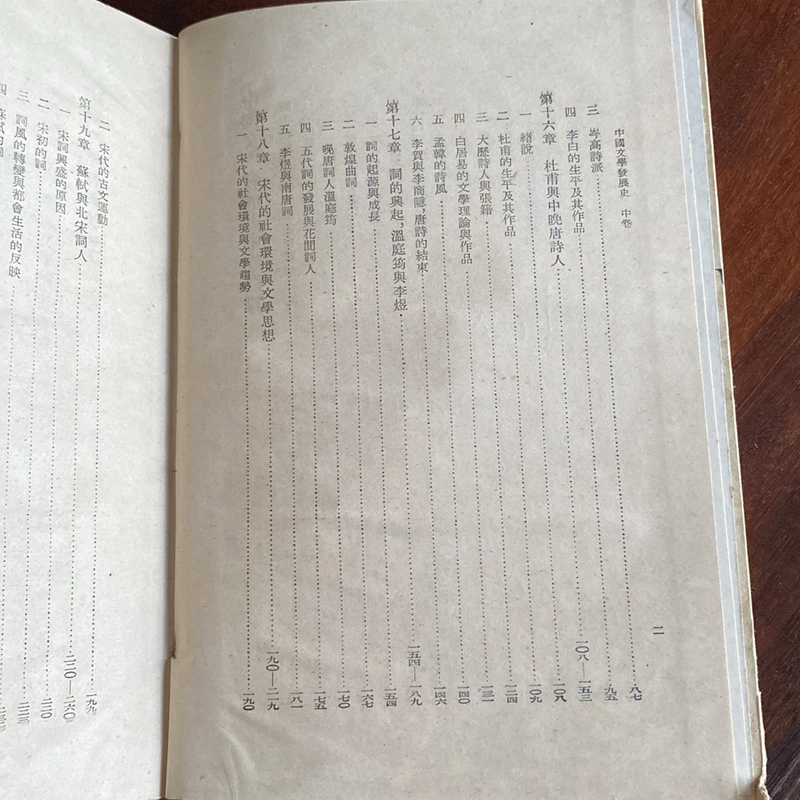 中國文學發展史 中卷 二
三 岑高詩派……八七
四 李白的生平及其作品……九五
第十六章 杜甫與中晚唐詩人……一〇八—一五三
一 緒說……一〇八
二 杜甫的生平及其作品……一〇九
三 大歷詩人與張籍……一二四
四 白居易的文學理論與作品……一三一
五 孟韓的詩風……一四〇
六 李賀與李商隱,唐詩的結束……一四六
第十七章 詞的興起,溫庭筠與李煜……一五四—一八九
一 詞的起源與成長……一五四
二 敦煌曲詞……一六七
三 晚唐詞人溫庭筠……一七〇
四 五代詞的發展與花間詞人……一七五
五 李煜與南唐詞……一八一
第十八章 宋代的社會環境與文學思想……一九〇—二一九
一 宋代的社會環境與文學趨勢……一九〇
二 宋代的古文運動……一九九
第十九章 蘇軾與北宋詞人……二二〇—二六〇
一 宋詞興盛的原因……二二〇
二 宋初的詞……二二三
三 詞風的轉變與都會生活的反映
四 蘇軾的詞